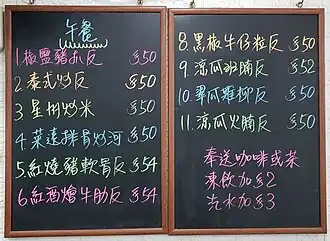 午餐
1.椒鹽豬扒反 $50
2.泰式炒反 $50
3.星州炒米 $50
4.菜遠排骨炒河 $50
5.紅燒豬軟骨反 $54
6.紅酒燴牛肋反 $54
8.黑椒牛仔粒反 $50
9.涼瓜班腩反 $52
10.翠瓜雞柳反 $50
11.涼瓜火腩反 $50
奉送咖啡或茶
凍飲加$2
汽水加$3